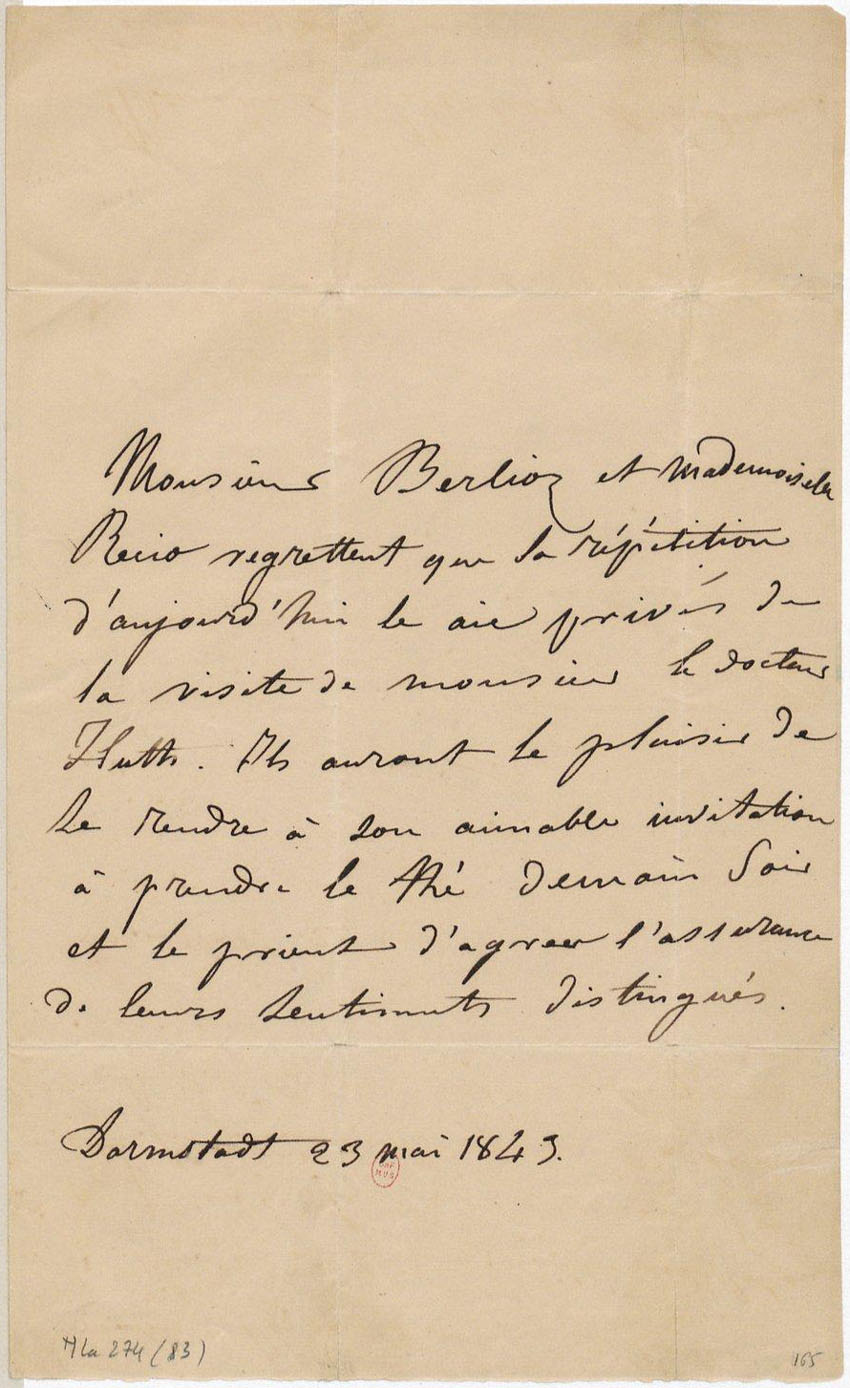 Monsieur Berlioz et mademoiselle
Recio regrettent que la répétition
d'aujourd'hui le aie privés de
la visite de monsieur le docteur
Huth. Ils auront le plaisir de
se rendre à son aimable invitation
à prendre le thé demain soir
et le prient d'agreer l'assurance
de leurs sentiments distingués.
Darmstadt 23 mai 1843.
Hla 274 (83)
165